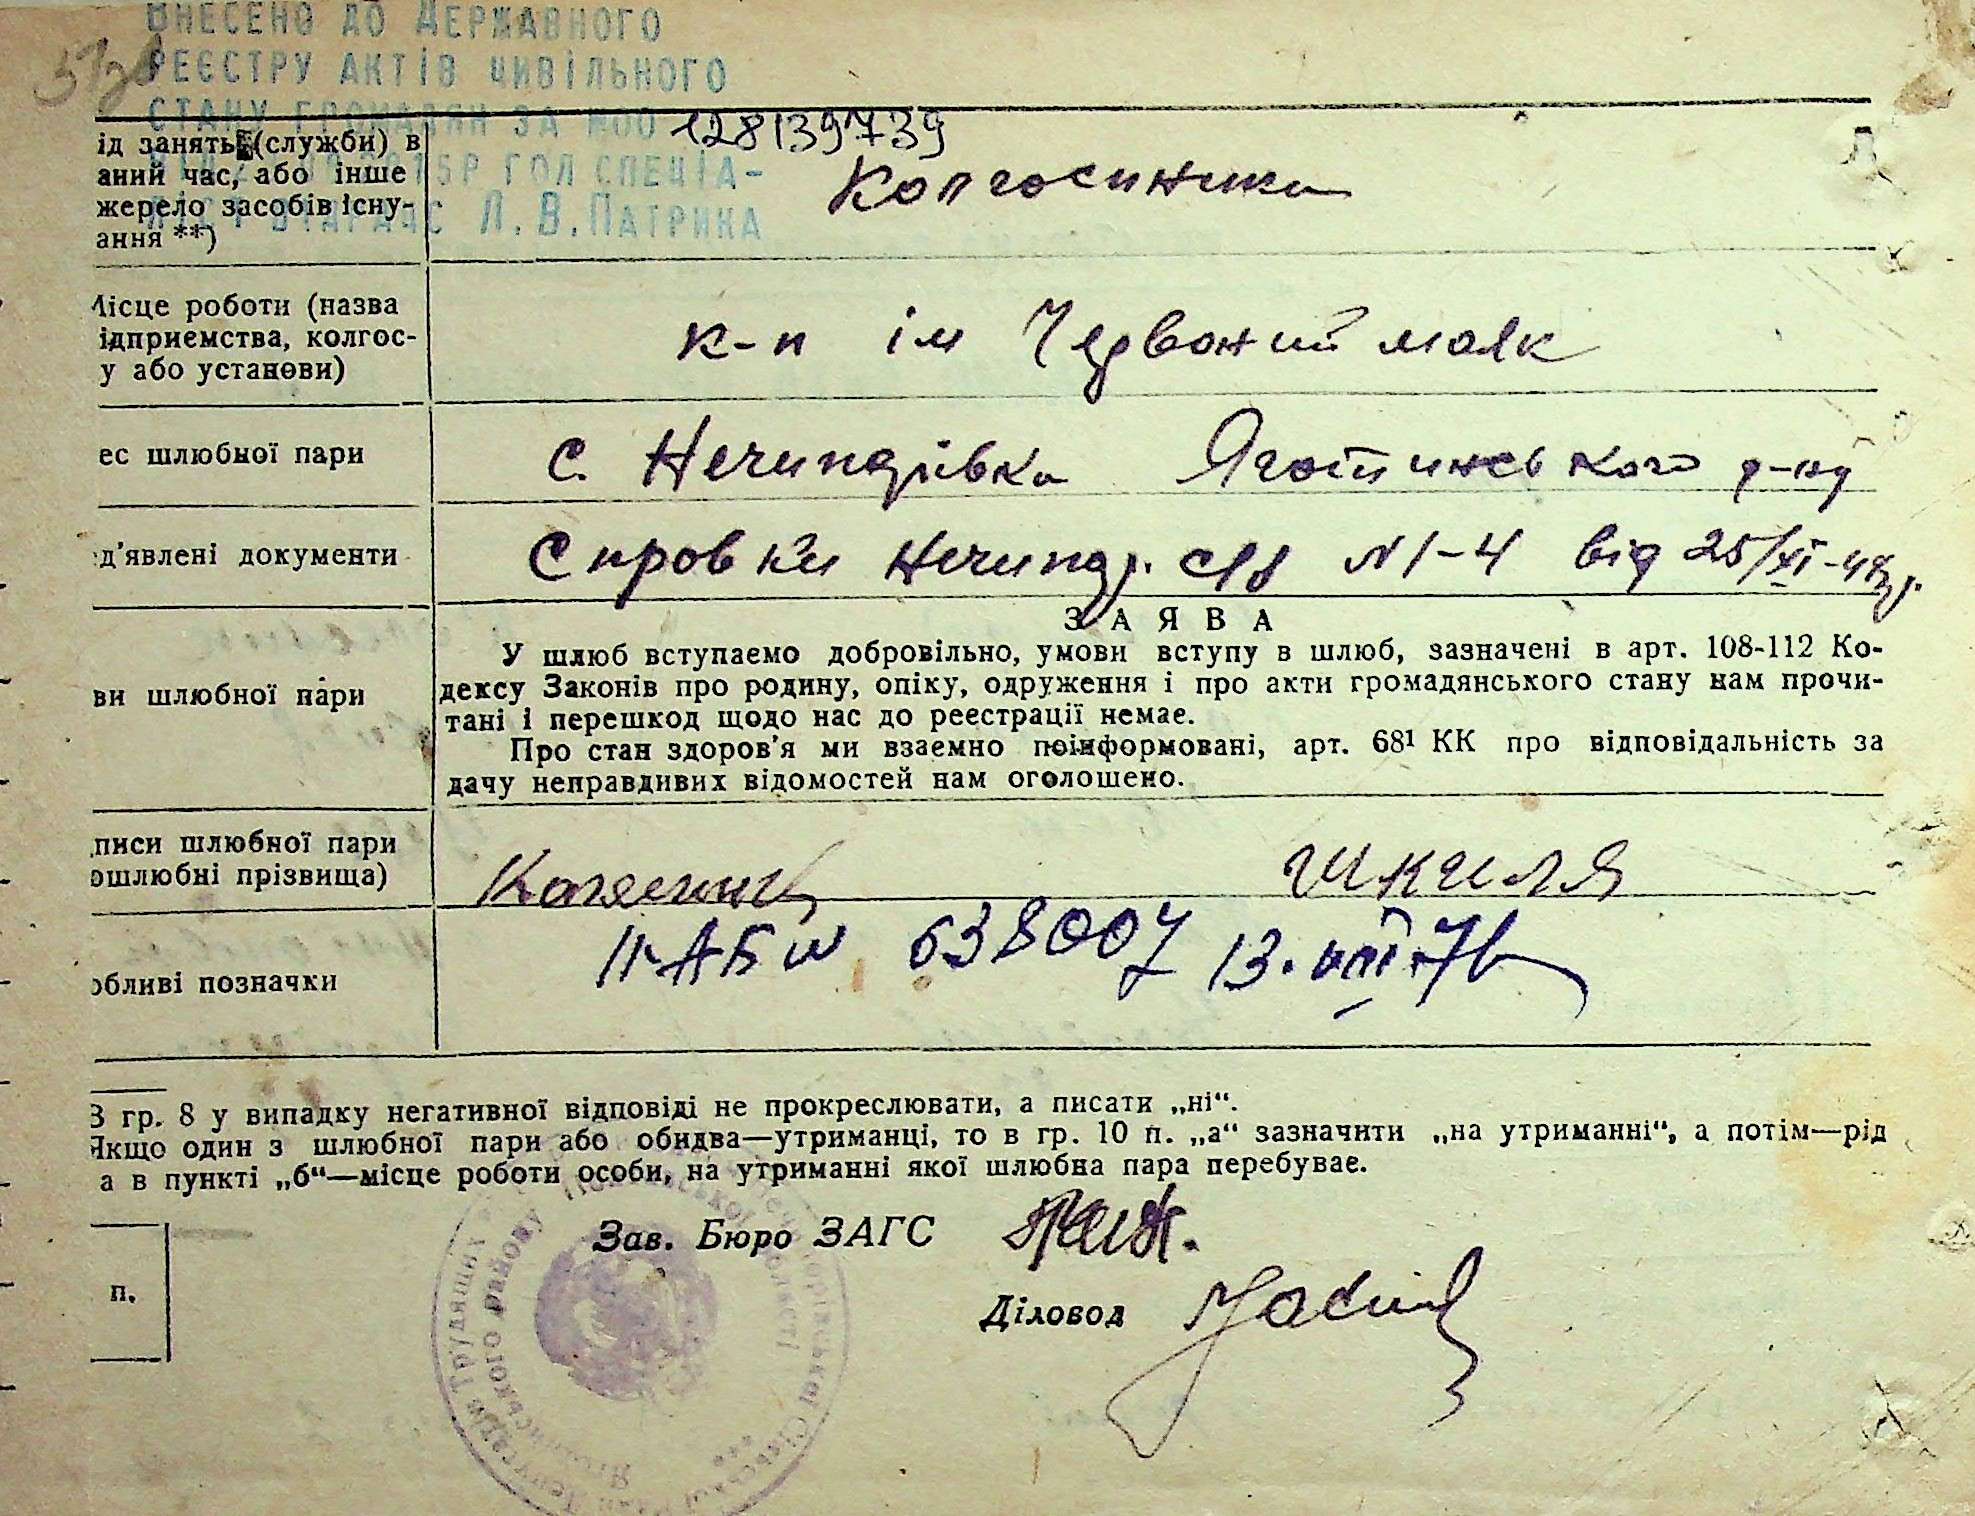 ВНЕСЕНО ДО ДЕРЖАВНОГО
РЕЄСТРУ АКТІВ ЦИВІЛЬНОГО
СТАНУ ГРОМАДЯН ЗА №00 128139739
15Р ГОЛ СПЕЦІА-
Л. В. ПАТРИКА
ід занять (служби) в
аний час, або інше
жерело засобів існу-
ання **)
Колгоспники
Місце роботи (назва
ідприємства, колгос-
у або установи)
к-п ім Червоний маяк
ес шлюбної пари
с. Нечипорівка Яготинського р-ну
д'явлені документи
Справки Нечипор. с/р №1-4 від 25/XI-
ЗАЯВА
ви шлюбної пари
У шлюб вступаємо добровільно, умови вступу в шлюб, зазначені в арт. 108-112 Ко-
дексу Законів про родину, опіку, одруження і про акти громадянського стану нам прочи-
тані і перешкод щодо нас до реєстрації немає.
Про стан здоров'я ми взаємно поінформовані, арт. 68¹ КК про відповідальність за
дачу неправдивих відомостей нам оголошено.
писи шлюбної пари
ошлюбні прізвища)
Шкиля
обливі позначки
638007 13.VIII.71
В гр. 8 у випадку негативної відповіді не прокреслювати, а писати „ні“.
Якщо один з шлюбної пари або обидва—утриманці, то в гр. 10 п. „а“ зазначити „на утриманні“, а потім—рід
а в пункті „б“—місце роботи особи, на утриманні якої шлюбна пара перебуває.
Зав. Бюро ЗАГС
п.
Діловод